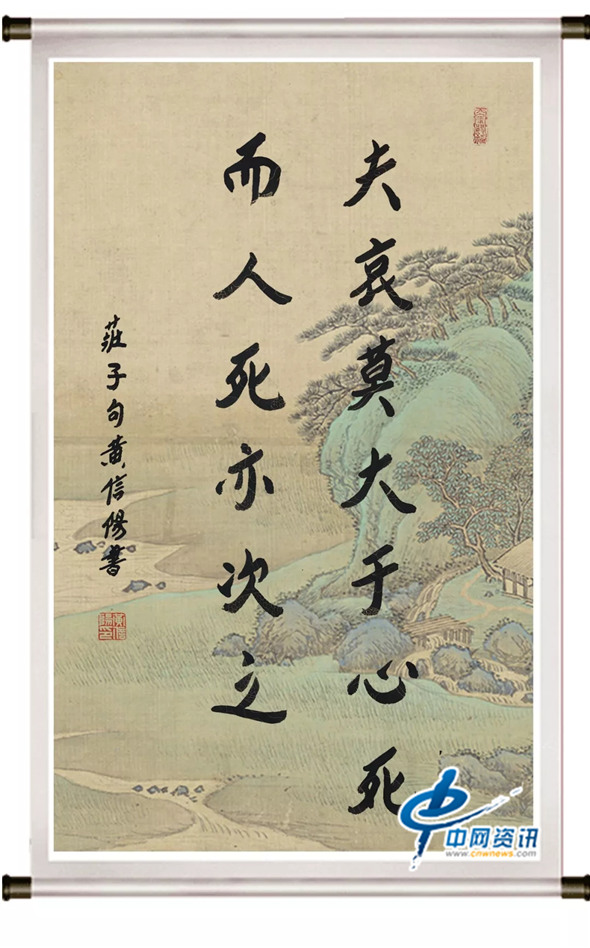 夫哀莫大于心死
而人死亦次之
莊子句黄信陽書
中网资讯
www.cnwnews.com